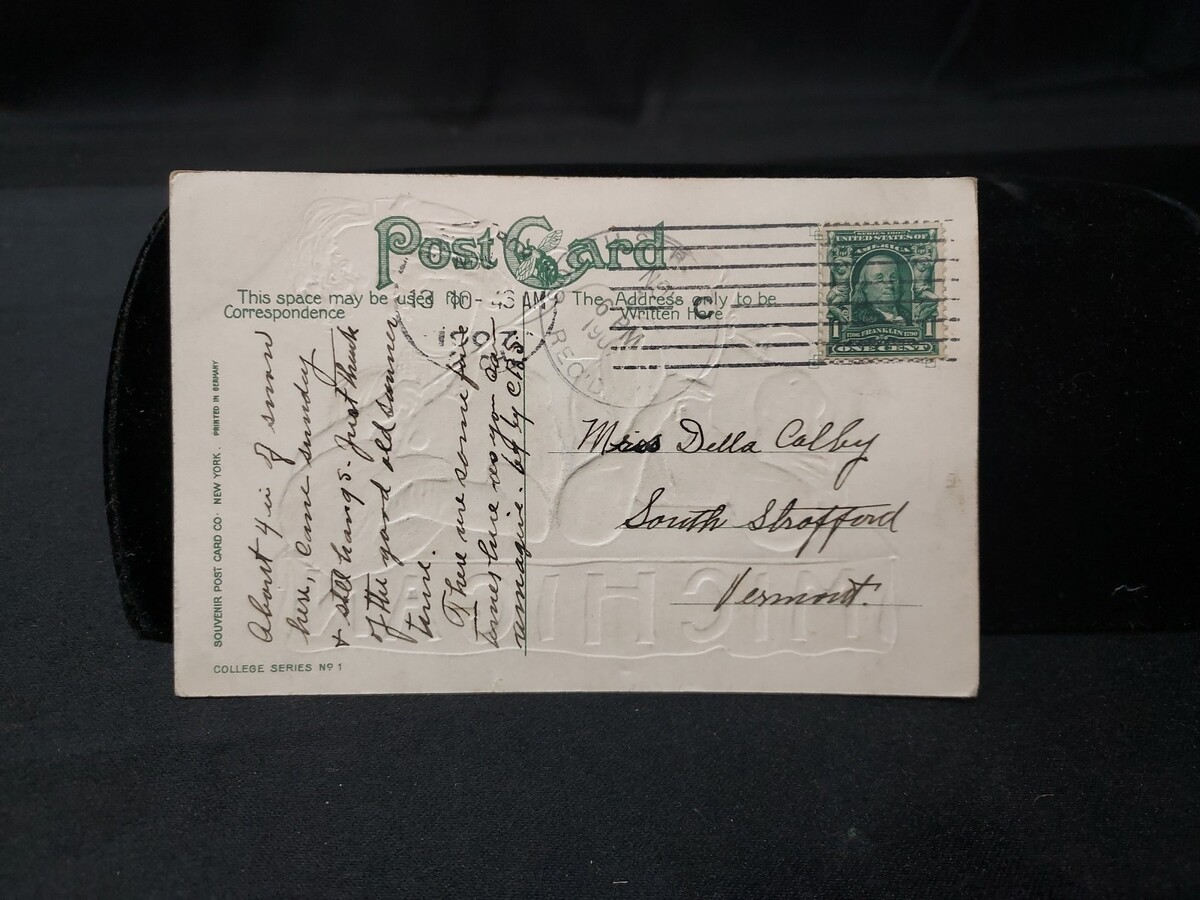 Post Card
This space may be used for
Correspondence
The Address only to be
Written Here
13 10-43 AM
REC'D.
6 PM
C
SERIES 1902
UNITED STATES OF
AMERICA
1706 FRANKLIN 1790
1 1
ONE CENT
About 4 in of snow
here, came sunday
+ still hangs. Just think
of the good old summer
time.
There are some fine
times here as you can
imagine.
Miss Della Colby
South Strafford
Vermont.
SOUVENIR POST CARD CO. NEW YORK. PRINTED IN GERMANY
COLLEGE SERIES Nº 1
MICHIGAN